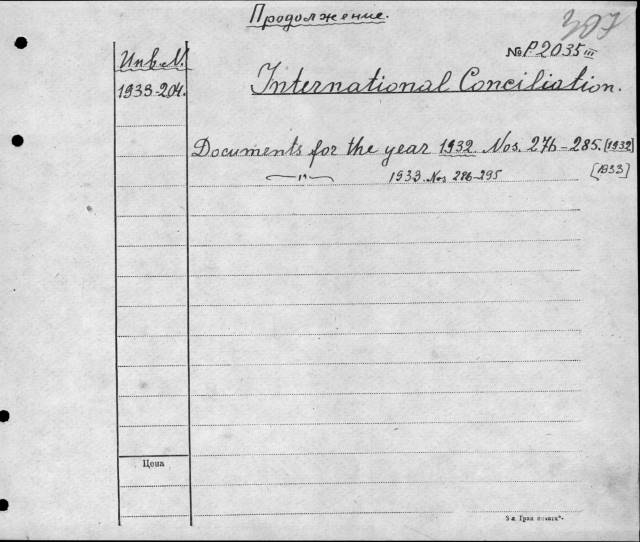 Продолжение.
307
Инв. N.
№ P.2035 III
1933-204.
International Conciliation.
Documents for the year 1932. Nos. 276-285. [1932]
—"— 1933. Nos 286-295 [1933]
Цена